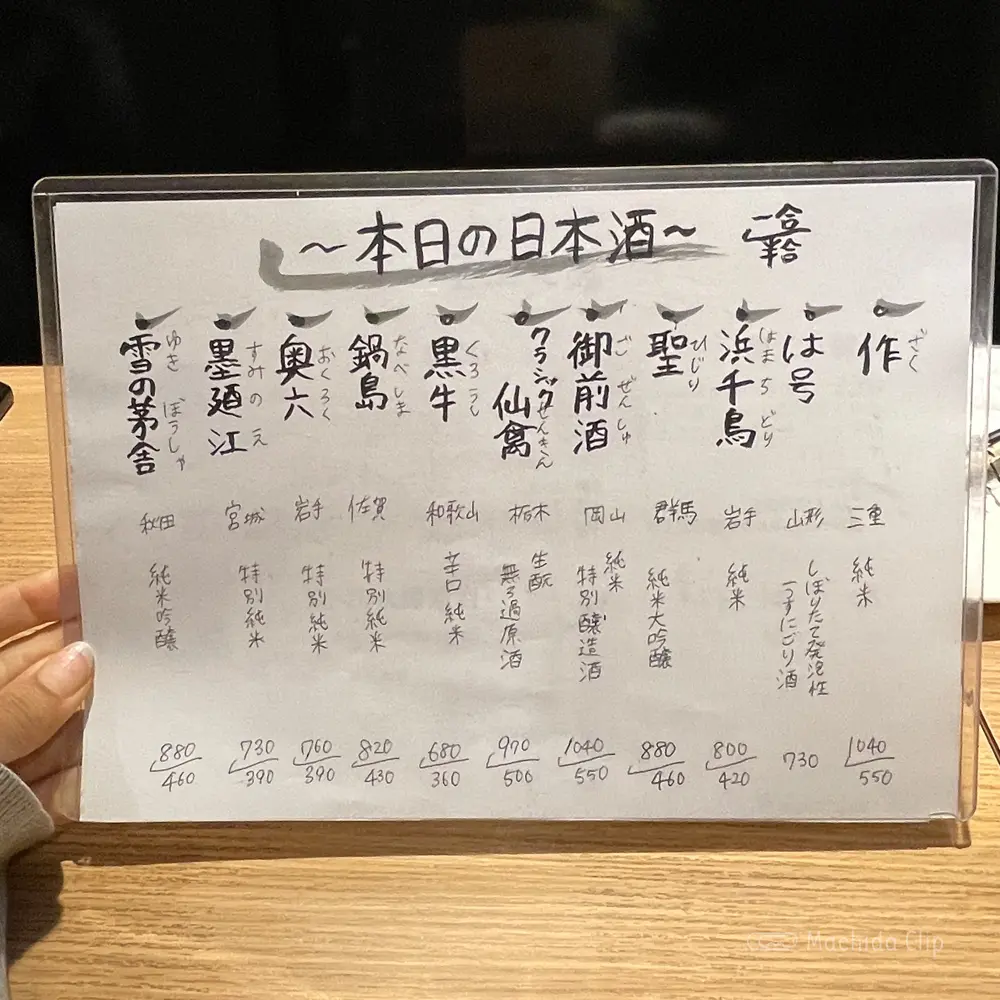 ～本日の日本酒～
一合
半合
作
ざく
三重
純米
1040
550
は号
山形
しぼりたて発泡性
うすにごり酒
730
浜千鳥
はまちどり
岩手
純米
800
420
聖
ひじり
群馬
純米大吟醸
880
460
御前酒
ごぜんしゅ
岡山
純米
特別醸造酒
1040
550
クラシック
仙禽
せんきん
栃木
生酛
無ろ過原酒
970
500
黒牛
くろうし
和歌山
辛口純米
680
360
鍋島
なべしま
佐賀
特別純米
820
430
奥六
おくろく
岩手
特別純米
760
390
墨廼江
すみのえ
宮城
特別純米
730
390
雪の茅舎
ゆきぼうしゃ
秋田
純米吟醸
880
460
Machida Clip